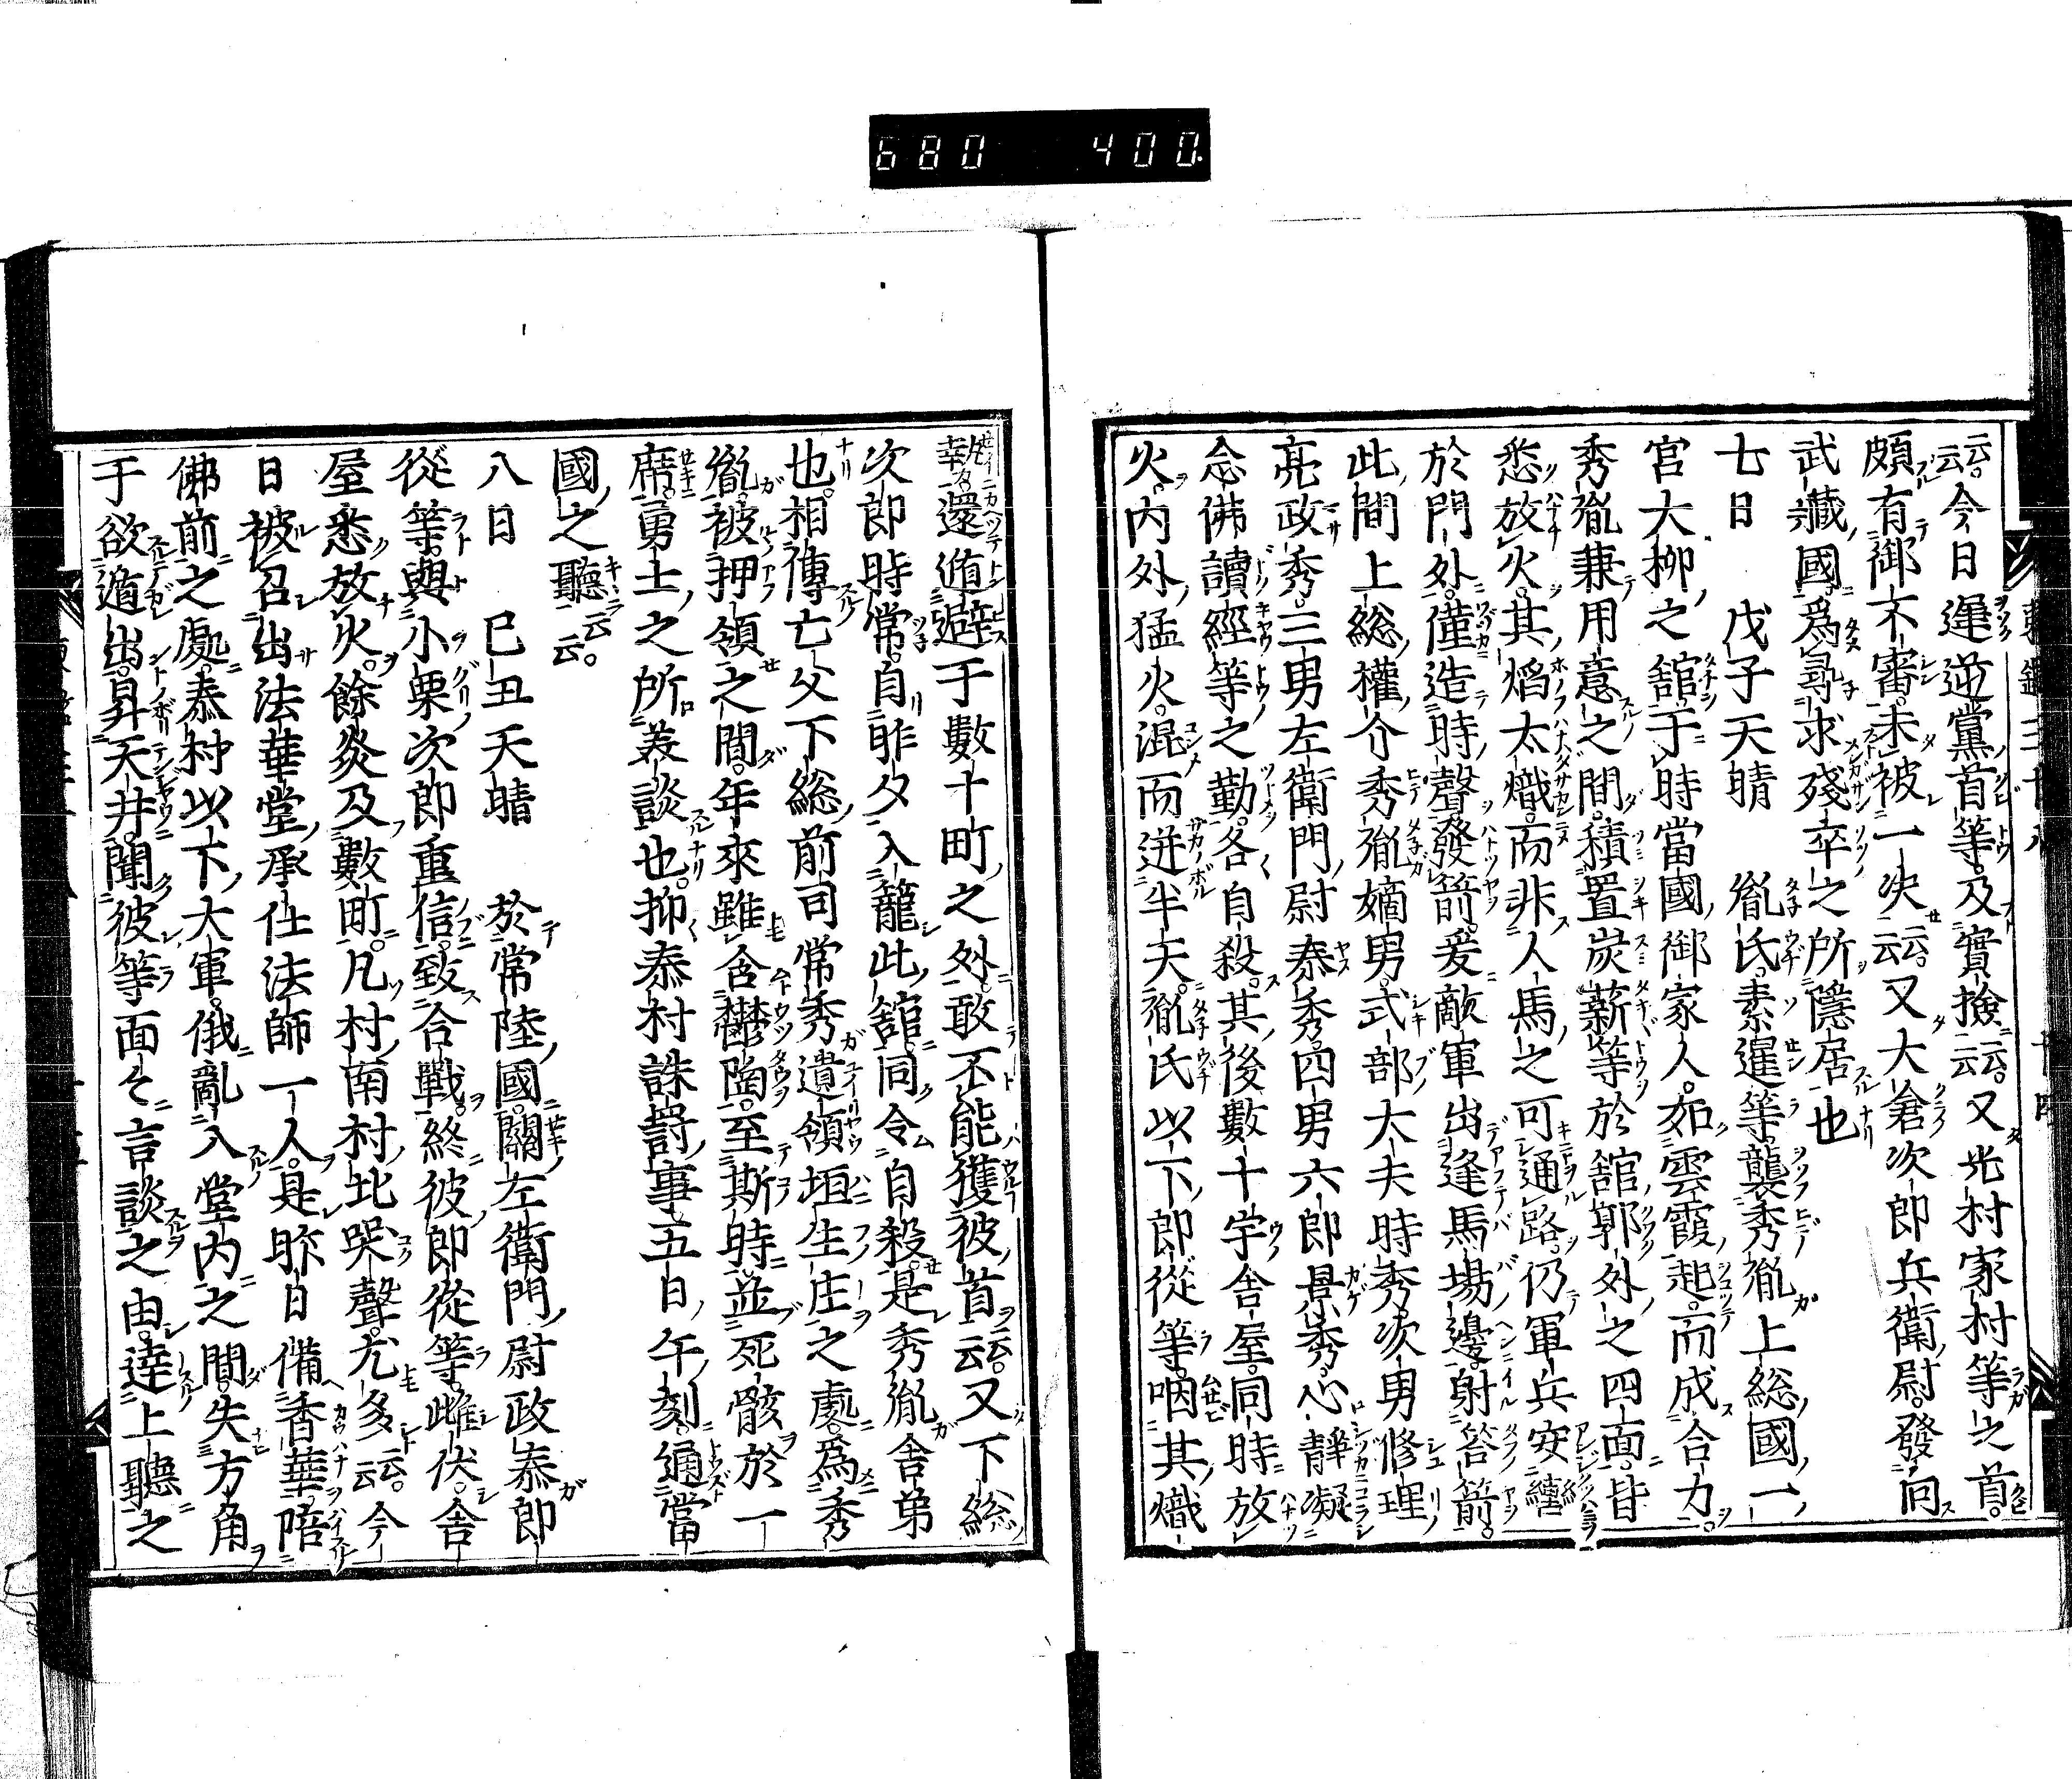 680 400.
云云。今日遲逆黨首等。及實撿云云。又光村家村等之首。
頗有御不審。未被一决云云。又大倉次郎兵衞尉。發向
武藏國。爲尋求殘卒之所隱居也
七日 戊子天晴 胤氏。素暹等。襲秀胤上総國一
宮大柳之舘。于時當國御家人。如雲霞起而成合力。
秀胤兼用意之間。積置炭薪等於舘郭外之四面。皆
悉放火。其焰太熾。而非人馬之可通路。仍軍兵安轡
於門外。僅造時聲發箭。爰敵軍出逢馬場邊。射荅箭。
此間上総權介秀胤嫡男。式部大夫時秀。次男修理
亮政秀。三男左衞門尉泰秀。四男六郎景秀。心靜凝
念佛讀經等之勤。各自殺。其後數十宇舎屋。同時放
火。内外猛火。混而迸半天。胤氏以下郎從等。咽其熾
還遁避于數十町之外。敢不能獲彼首云云。又下総
次郎時常。自昨夕入籠此舘。同令自殺。是秀胤舎弟
也。相傳亡父下総前司常秀遺領垣生庄之處。爲秀
胤被押領之間。年來雖含欝陶。至斯時並死骸於一
席。勇士之所美談也。抑泰村誅罸事。五日午刻通當
國之聽云云。
八日 己丑天晴 於常陸國。關左衞門尉政泰郎
從等。與小栗次郎重信。致合戰。終彼郎從等。雌伏。舎
屋悉放火。餘炎及數町。凡村南村北哭聲。尤多云云。今
日被召出法華堂承仕法師一人。是昨日備香華陪
佛前之處。泰村以下大軍。俄亂入堂内之間。失方角
于欲遁出。昇天井。聞彼等面々言談之由。達上聽之